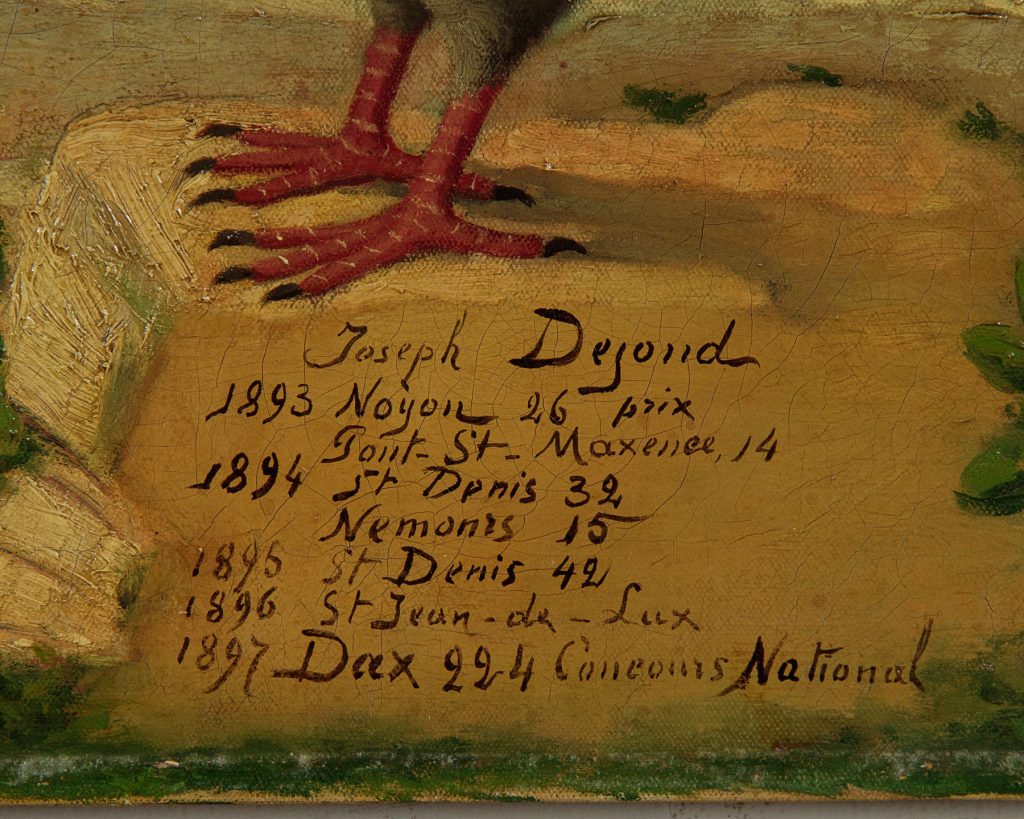 Joseph Dejond
1893 Noyon 26 prix
Pont-St-Maxence, 14
1894 St Denis 32
Nemours 15
1895 St Denis 42
1896 St Jean-de-Lux
1897 Dax 224 Concours National